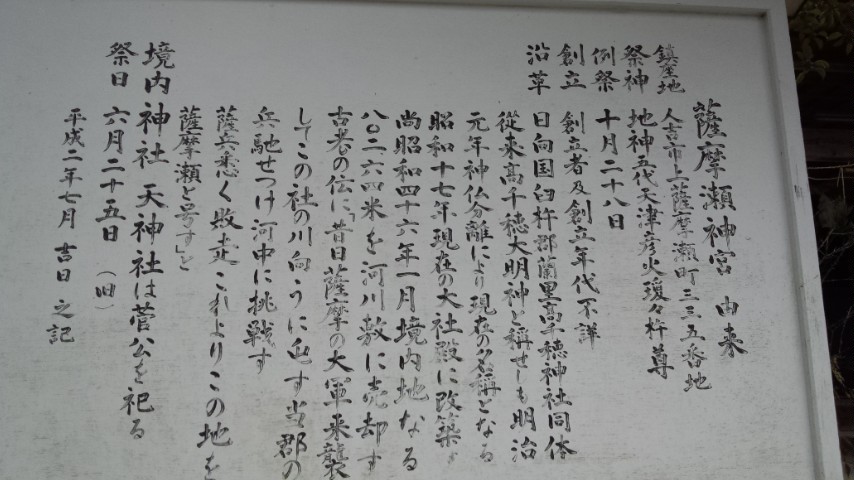 薩摩瀬神宮 由来
鎮座地 人吉市上薩摩瀬町三三五番地
祭神 地神五代天津彦火瓊々杵尊
例祭 十月二十八日
創立 創立者及創立年代不詳
沿革 日向国臼杵郡蘭里高千穂神社同体
従来高千穂大明神と称せしも明治
元年神仏分離により現在の名称となる
昭和十七年現在の大社殿に改築す
尚昭和四十六年一月境内地なる
八〇二.六四米を河川敷に売却す
古老の伝に「昔日薩摩の大軍来襲
してこの社の川向うに屯す当郡の
兵馳せつけ河中に挑戦す
薩兵悉く敗走これよりこの地を
薩摩瀬と号す」と
境内神社 天神社は菅公を祀る
祭日 六月二十五日(旧)
平成二年七月 吉日之記